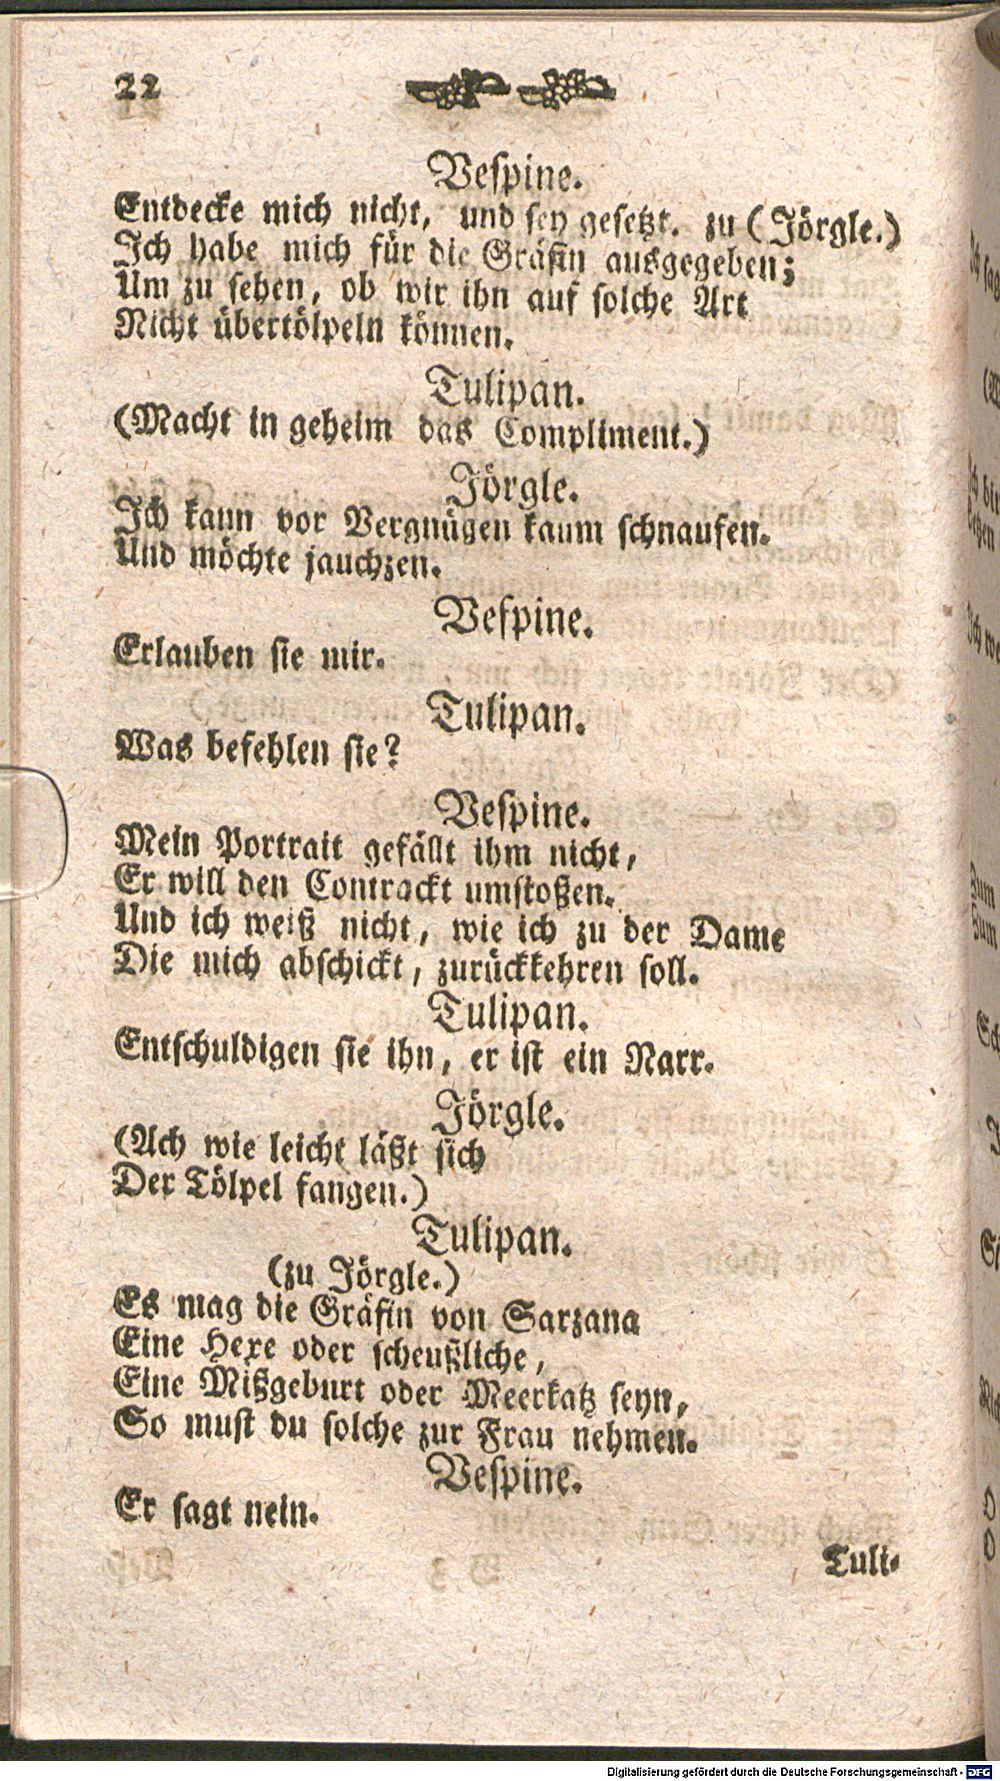 22
Vespine.
Entdecke mich nicht, und sey gesetzt. zu (Jörgle.)
Ich habe mich für die Gräfin ausgegeben;
Um zu sehen, ob wir ihn auf solche Art
Nicht übertölpeln können.
Tulipan.
(Macht in geheim das Compliment.)
Jörgle.
Ich kann vor Vergnügen kaum schnaufen.
Und möchte jauchzen.
Vespine.
Erlauben sie mir.
Tulipan.
Was befehlen sie?
Vespine.
Mein Portrait gefällt ihm nicht,
Er will den Contrackt umstoßen.
Und ich weiß nicht, wie ich zu der Dame
Die mich abschickt, zurückkehren soll.
Tulipan.
Entschuldigen sie ihn, er ist ein Narr.
Jörgle.
(Ach wie leicht läßt sich
Der Tölpel fangen.)
Tulipan.
(zu Jörgle.)
Es mag die Gräfin von Sarzana
Eine Hexe oder scheußliche,
Eine Mißgeburt oder Meerkatz seyn,
So must du solche zur Frau nehmen.
Vespine.
Er sagt nein.
Tuli-
Digitalisierung gefördert durch die Deutsche Forschungsgemeinschaft - DFG